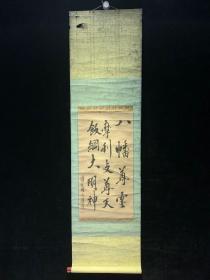 八幡尊霊
摩利支尊天
飯綱大明神